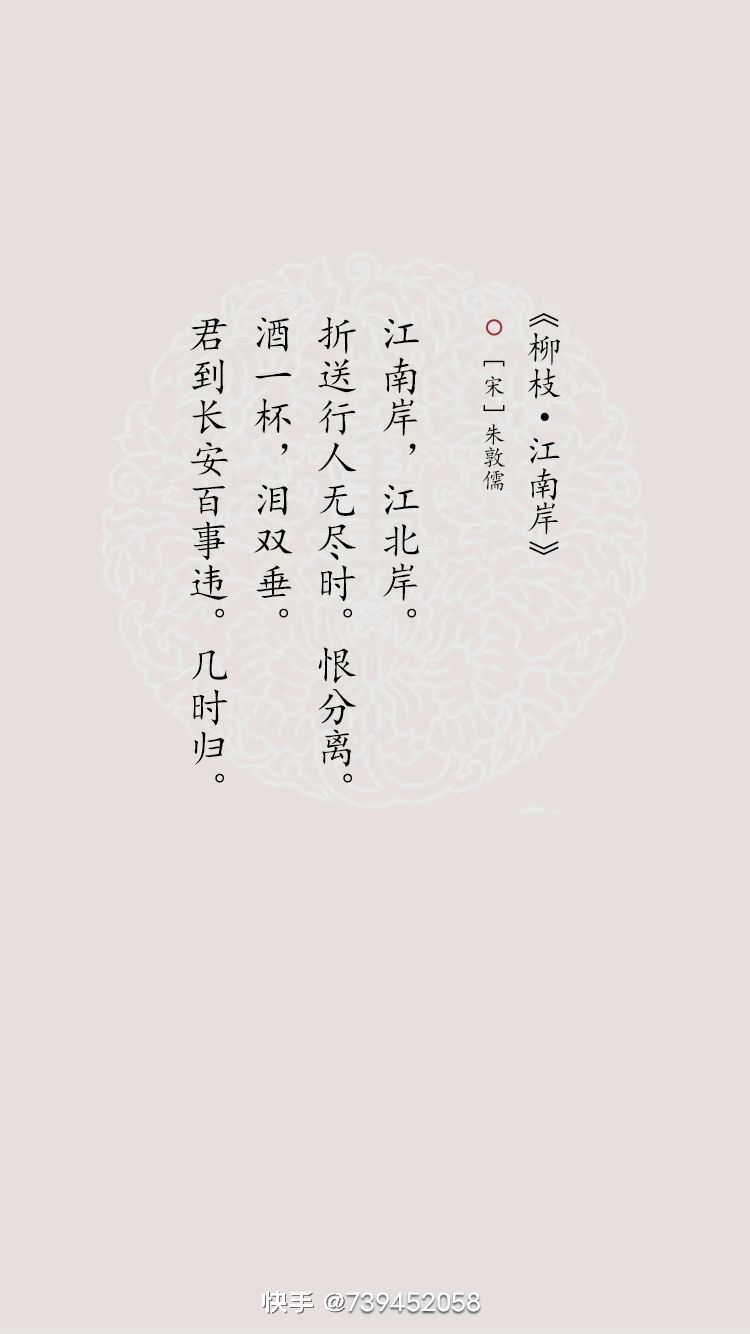 《柳枝·江南岸》
[宋]朱敦儒
江南岸，江北岸。
折送行人无尽时。恨分离。
酒一杯，泪双垂。
君到长安百事违。几时归。
快手 @739452058